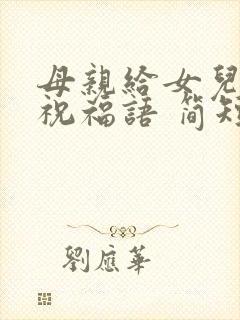 母親給女兒
祝福語 簡短
劉應華